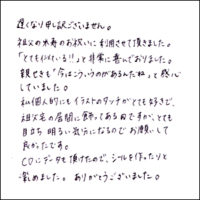 遅くなり申し訳ございません。
祖父の米寿のお祝いに利用させて頂きました。
「とても似ている!!」と非常に喜んでおりました。
親せきも「今はこういうのがあるんだね」と感心
していました。
私個人的にもイラストのタッチがとても好きで、
祖父宅の居間に飾ってあるのですが、とても
目立ち明るい気分になるのでお願いして
良かったです。
CDにデータも頂けたので、シールを作ったりと
楽めました。ありがとうございました。